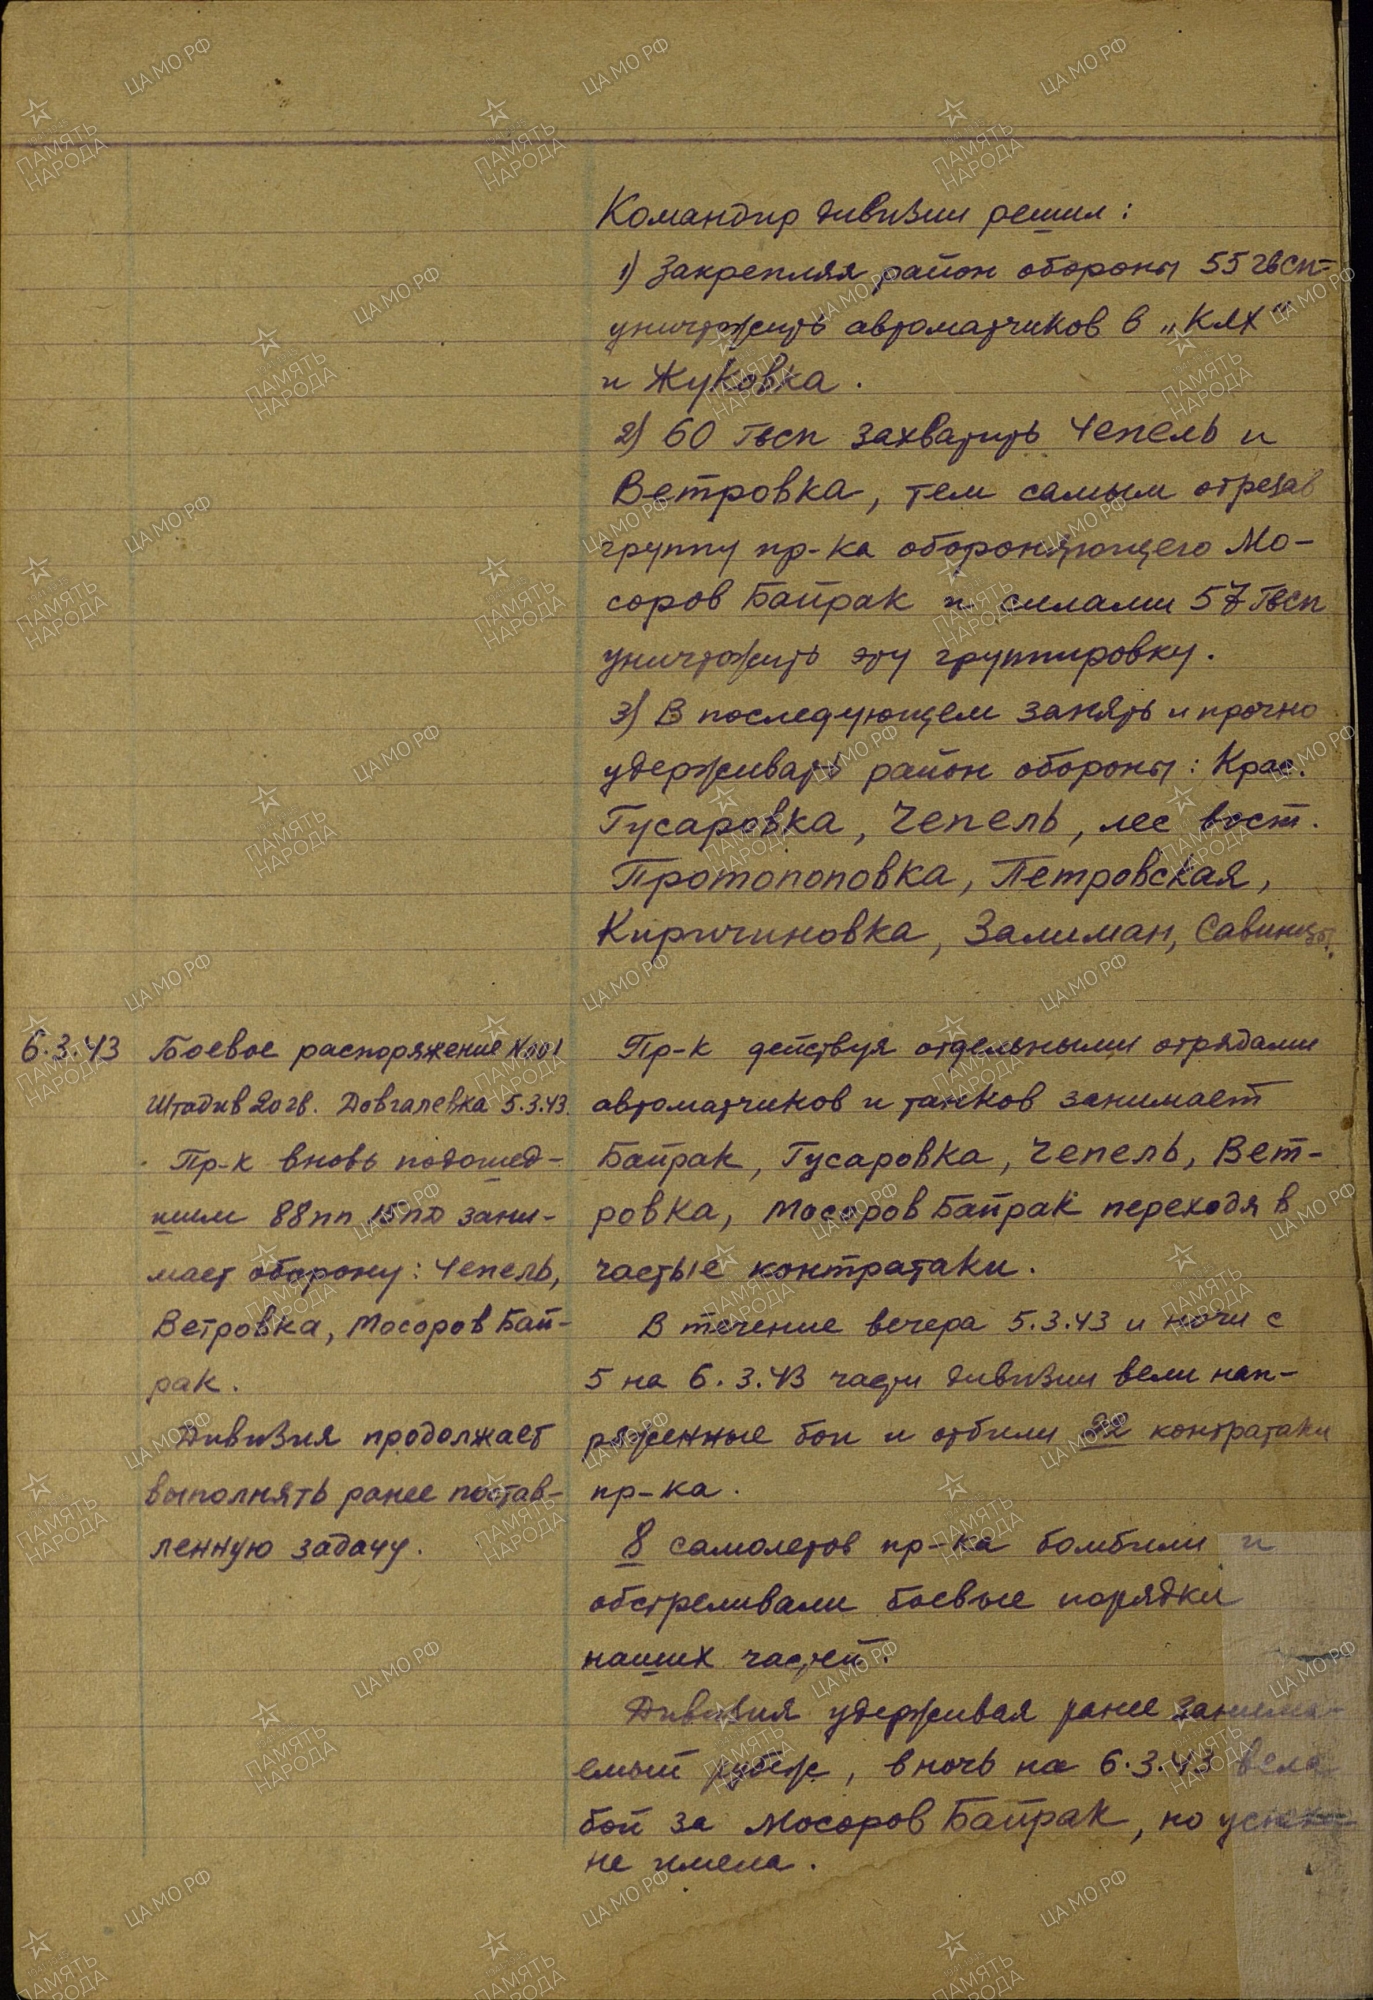 Командир дивизии решил:
1) Закрепляя район обороны 55 гвсп-
уничтожить автоматчиков в „КЛХ"
и Жуковка.
2) 60 Гвсп захватить Чепель и
Ветровка, тем самым отрезав
группу пр-ка обороняющего Мо-
соров Байрак и силами 57 Гвсп
уничтожить эту группировку.
3) В последующем занять и прочно
удерживать район обороны: Крас.
Гусаровка, Чепель, лес вост.
Протопоповка, Петровская,
Киричиновка, Залиман, Савинцы.
6.3.43
Боевое распоряжение №001
Штадив 20 гв. Довгалевка 5.3.43.
Пр-к вновь подошед-
шим 88пп 15пд зани-
мает оборону: Чепель,
Ветровка, Мосоров Бай-
рак.
Дивизия продолжает
выполнять ранее постав-
ленную задачу.
Пр-к действуя отдельными отрядами
автоматчиков и танков занимает
Байрак, Гусаровка, Чепель, Вет-
ровка, Мосоров Байрак переходя в
частые контратаки.
В течение вечера 5.3.43 и ночи с
5 на 6.3.43 части дивизии вели нап-
ряженные бои и отбили 22 контратаки
пр-ка.
8 самолетов пр-ка бомбили и
обстреливали боевые порядки
наших частей.
Дивизия удерживая ранее занима-
емый рубеж, в ночь на 6.3.43 вела
бой за Мосоров Байрак, но успеха
не имела.